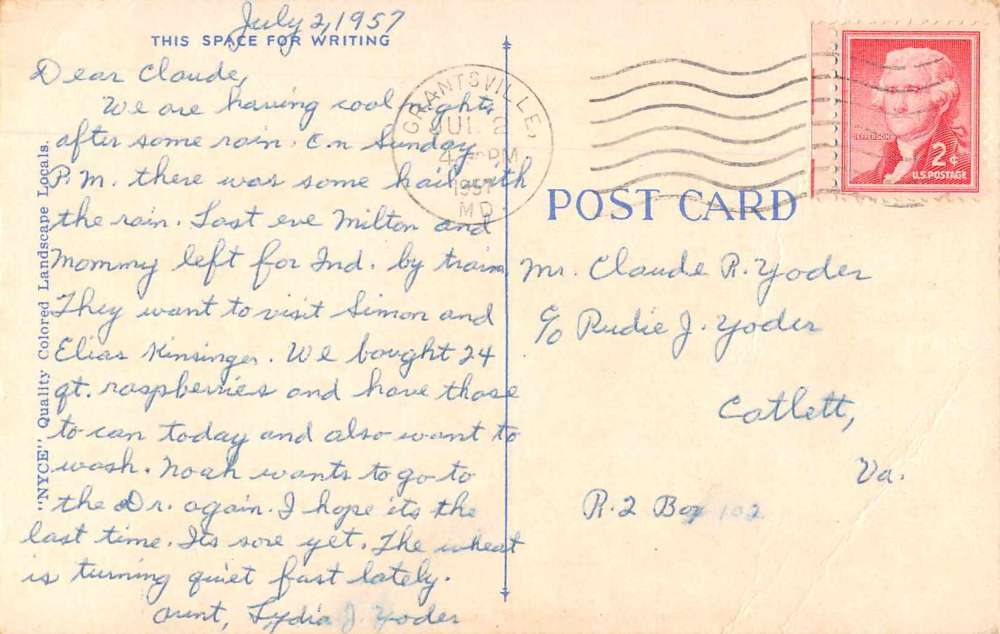 July 2, 1957
THIS SPACE FOR WRITING
Dear Claude,
We are having cool nights
after some rain. On Sunday
P.M. there was some hail with
the rain. Last eve Milton and
Mommy left for Ind. by train.
They want to visit Simon and
Elias Kinsinger. We bought 24
qt. raspberries and have those
to can today and also want to
wash. Noah wants to go to
the Dr. again. I hope its the
last time. Its sore yet. The wheat
is turning quiet fast lately.
Aunt, Lydia J. Yoder
"NYCE" Quality Colored Landscape Locals.
GRANTSVILLE,
JUL 2
4 PM
1957
MD
JEFFERSON
2¢
U.S. POSTAGE
POST CARD
Mr. Claude R. Yoder
c/o Rudie J. Yoder
Catlett,
Va.
R. 2 Box 102